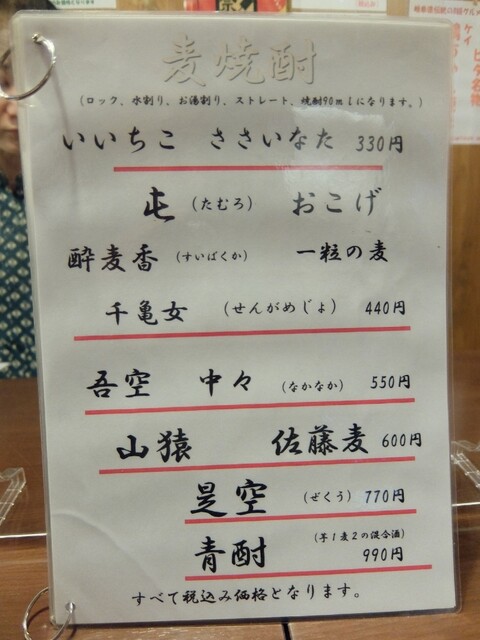 麦焼酎
（ロック、水割り、お湯割り、ストレート、焼酎90mlになります。）
いいちこ ささいなた 330円
屯（たむろ） おこげ
酔麦香（すいばくか） 一粒の麦
千亀女（せんがめじょ） 440円
吾空 中々（なかなか） 550円
山猿 佐藤麦 600円
是空（ぜくう） 770円
（芋1麦2の混合酒）
青酎 990円
すべて税込み価格となります。